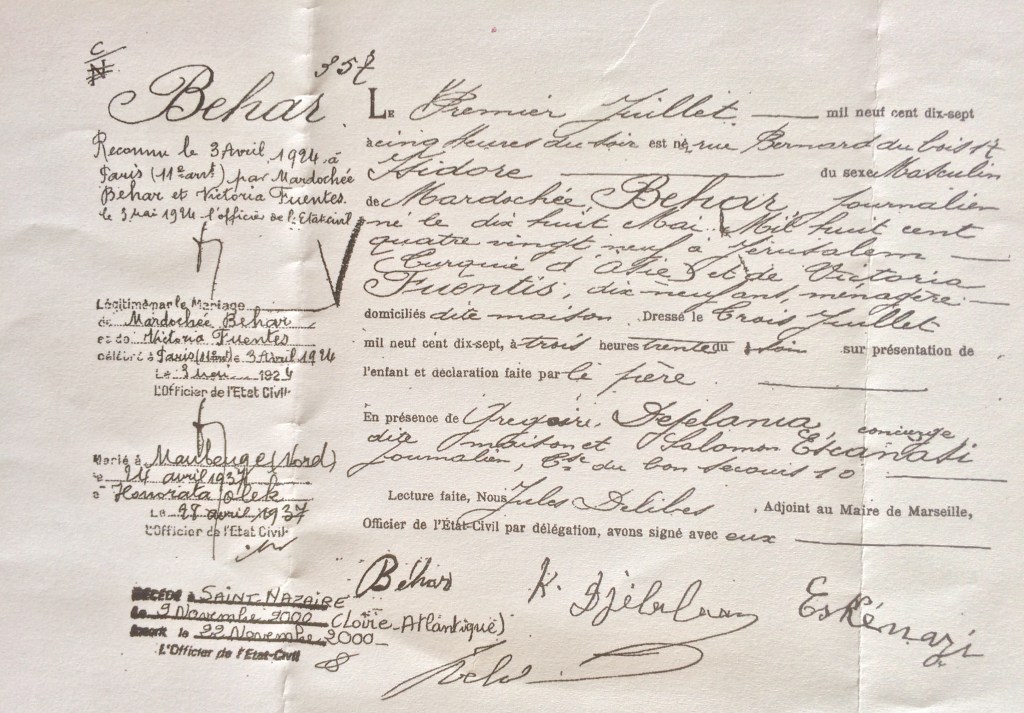 357
Behar
Reconnu le 3 Avril 1924 à
Paris (11e arrt) par Mardochée
Behar et Victoria Fuentes.
le 3 mai 1924 l'officier de l'Etat civil
Légitimé par le Mariage
de Mardochée Behar
et de Victoria Fuentes
célébré à Paris (11ème) le 3 Avril 1924
Le 3 mai 1924
L'Officier de l'Etat Civil
Marié à Maubeuge (Nord)
le 24 avril 1937
à Honorata Jolek
Le 28 avril 1937
L'Officier de l'Etat Civil
DÉCÉDÉ à SAINT NAZAIRE
Le 9 Novembre 2000 (Loire-Atlantique)
Inscrit le 22 Novembre 2000
L'Officier de l'Etat-Civil
LE Premier Juillet mil neuf cent dix-sept
à cinq heures du soir est né, rue Bernard du bois 17
Isidore du sexe Masculin
de Mardochée Behar journalier
né le dix huit Mai Mil huit cent
quatre vingt neuf à Jérusalem
(Turquie d'Asie) et de Victoria
Fuentis, dix-neuf ans, ménagère
domiciliés dite maison. Dressé le Trois Juillet
mil neuf cent dix-sept, à trois heures trente du soir sur présentation de
l'enfant et déclaration faite par le père
En présence de Grégoire Djelania, concierge
dite maison et Salomon Escanasi
journalier, Ese du bon secours 10
Lecture faite, Nous Jules Delibes, Adjoint au Maire de Marseille,
Officier de l'État-Civil par délégation, avons signé avec eux
Béhar K. Djelalian Eskénazi